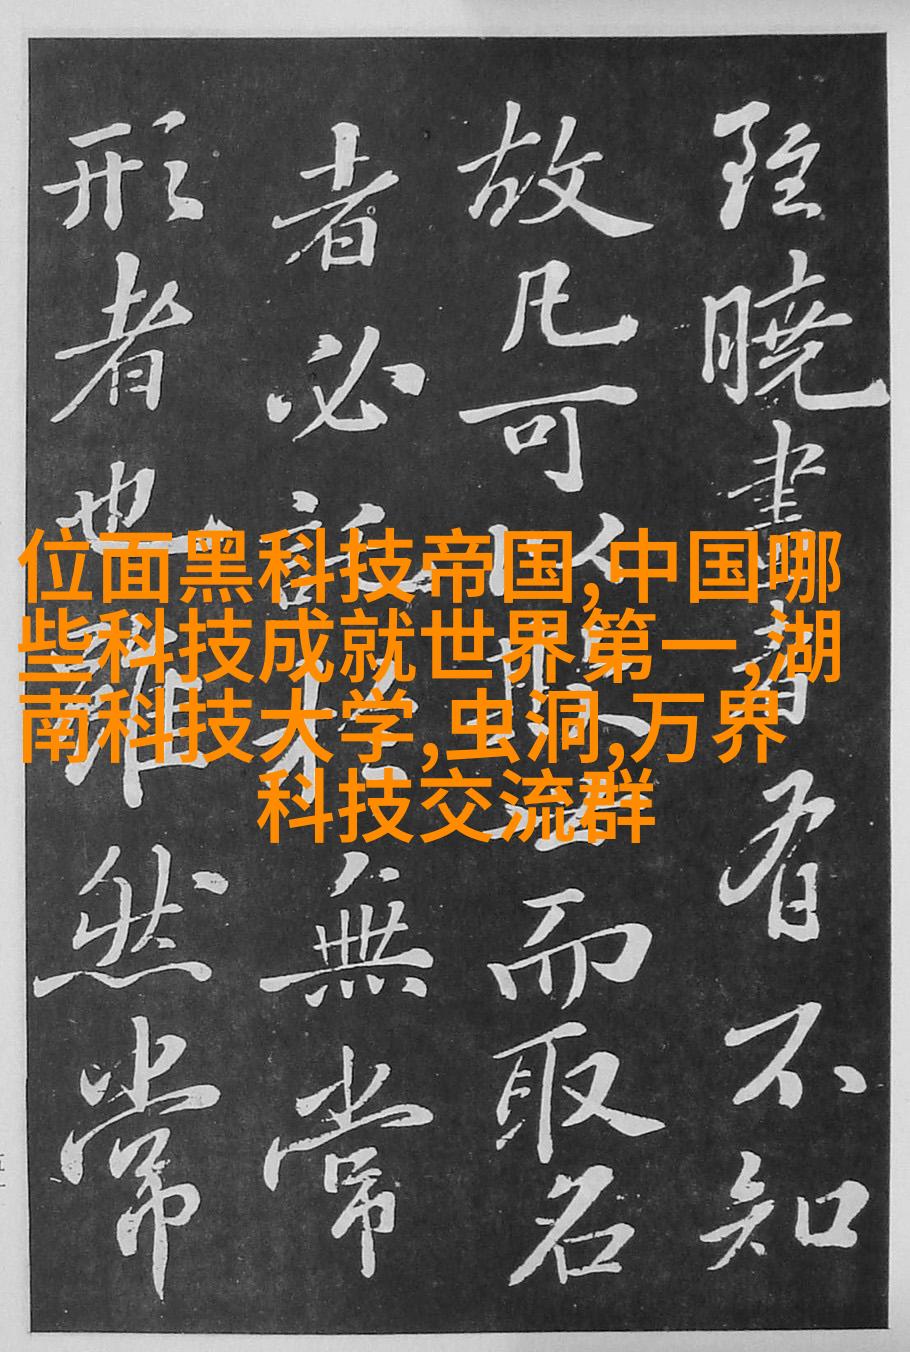 雖曉畫者有不知
故凡可以欺世而取名
者必託於無常
形者也雖然常
位面黑科技帝国,中国哪
些科技成就世界第一,湖
南科技大学,虫洞,万界
科技交流群